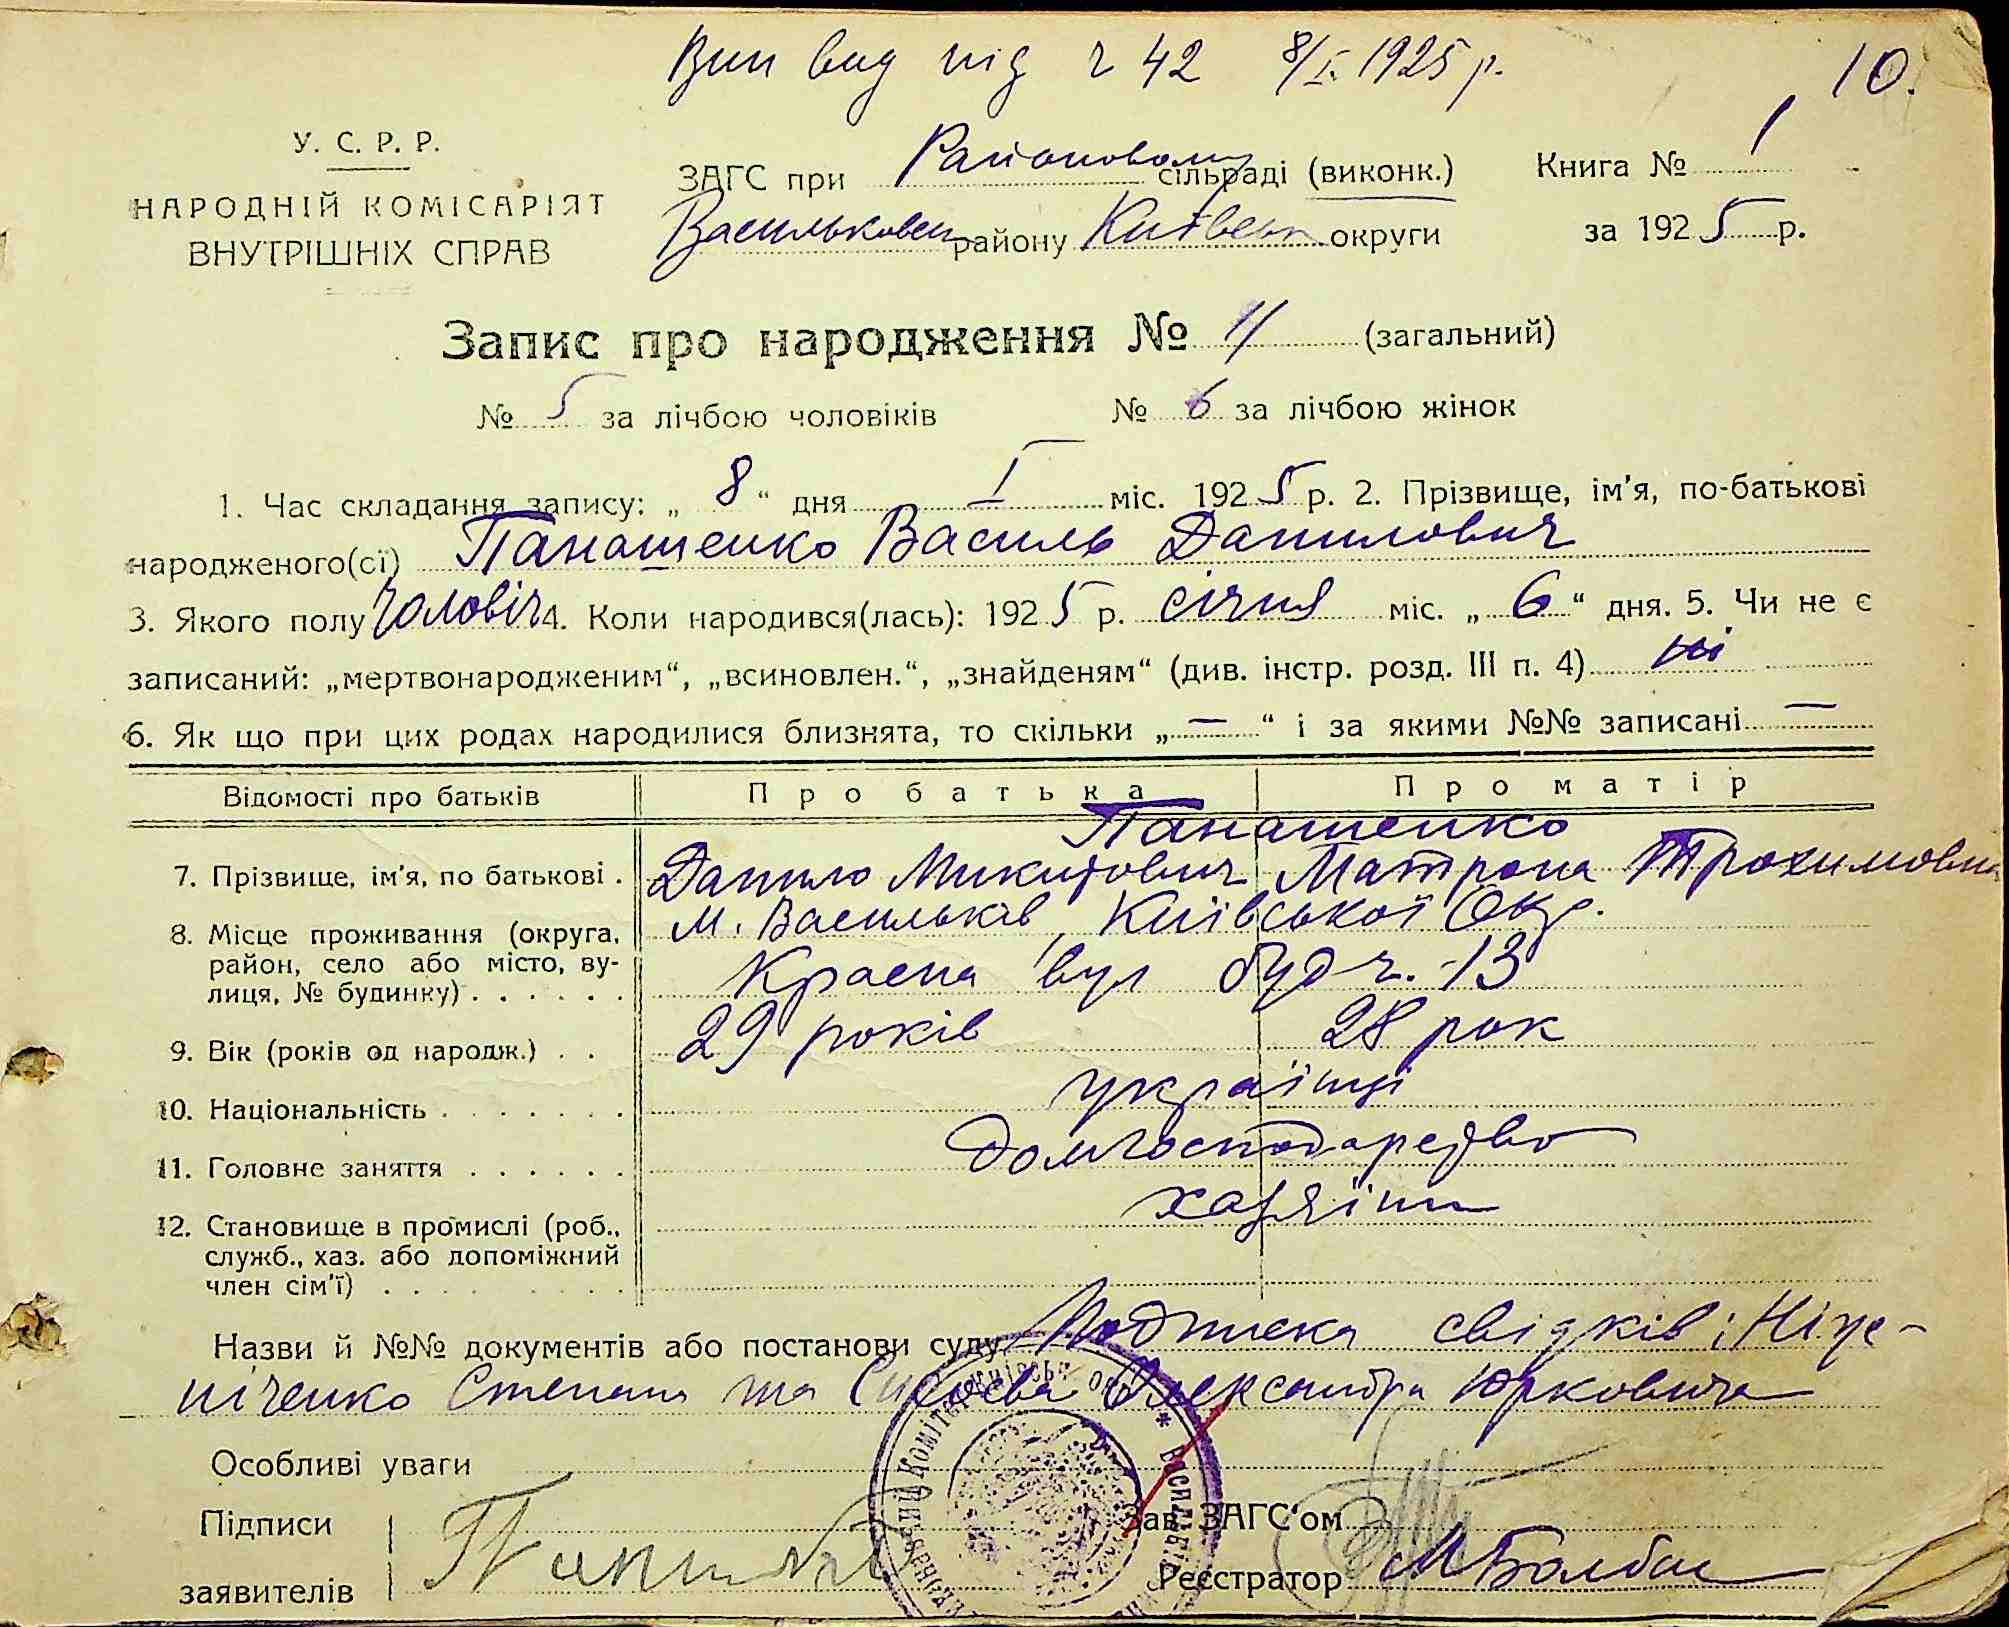 Вип вид під ч 42 8/I. 1925 р. 10.
У. С. Р. Р.
НАРОДНІЙ КОМІСАРІЯТ
ВНУТРІШНІХ СПРАВ
ЗАГС при Районовому сільраді (виконк.) Книга № 1
Васильковськ району Київськ округи за 1925 р.
Запис про народження № 11 (загальний)
№ 5 за лічбою чоловіків № 6 за лічбою жінок
1. Час складання запису: „ 8 “ дня I міс. 1925 р. 2. Прізвище, ім’я, по-батькові
народженого(сї) Панашенко Василь Данилович
3. Якого полу чоловіч 4. Коли народився(лась): 1925 р. січня міс. „ 6 “ дня. 5. Чи не є
записаний: „мертвонародженим“, „всиновлен.“, „знайденям“ (див. інстр. розд. III п. 4) ні
6. Як що при цих родах народилися близнята, то скільки „ — “ і за якими №№ записані —
Відомості про батьків Про батька Про матір
Панашенко
7. Прізвище, ім’я, по батькові . Данило Микитович Матрона Трохимовна
8. Місце проживання (округа, м. Васильків, Київської Окр.
район, село або місто, ву- Красна вул буд ч. -13
лиця, № будинку) . . . . . .
9. Вік (років од народж.) . . 29 років 28 рок
10. Національність . . . . . . . українці
11. Головне заняття . . . . . . домгосподарство
12. Становище в промислі (роб., хазяїни
служб., хаз. або допоміжний
член сім’ї) . . . . . . . . .
Назви й №№ документів або постанови суду Подписка свідків: Ніче-
піченко Степана та Олександра Юрковича
Особливі уваги
Підписи Зав. ЗАГС‘ом
заявителів Реєстратор М Болбас